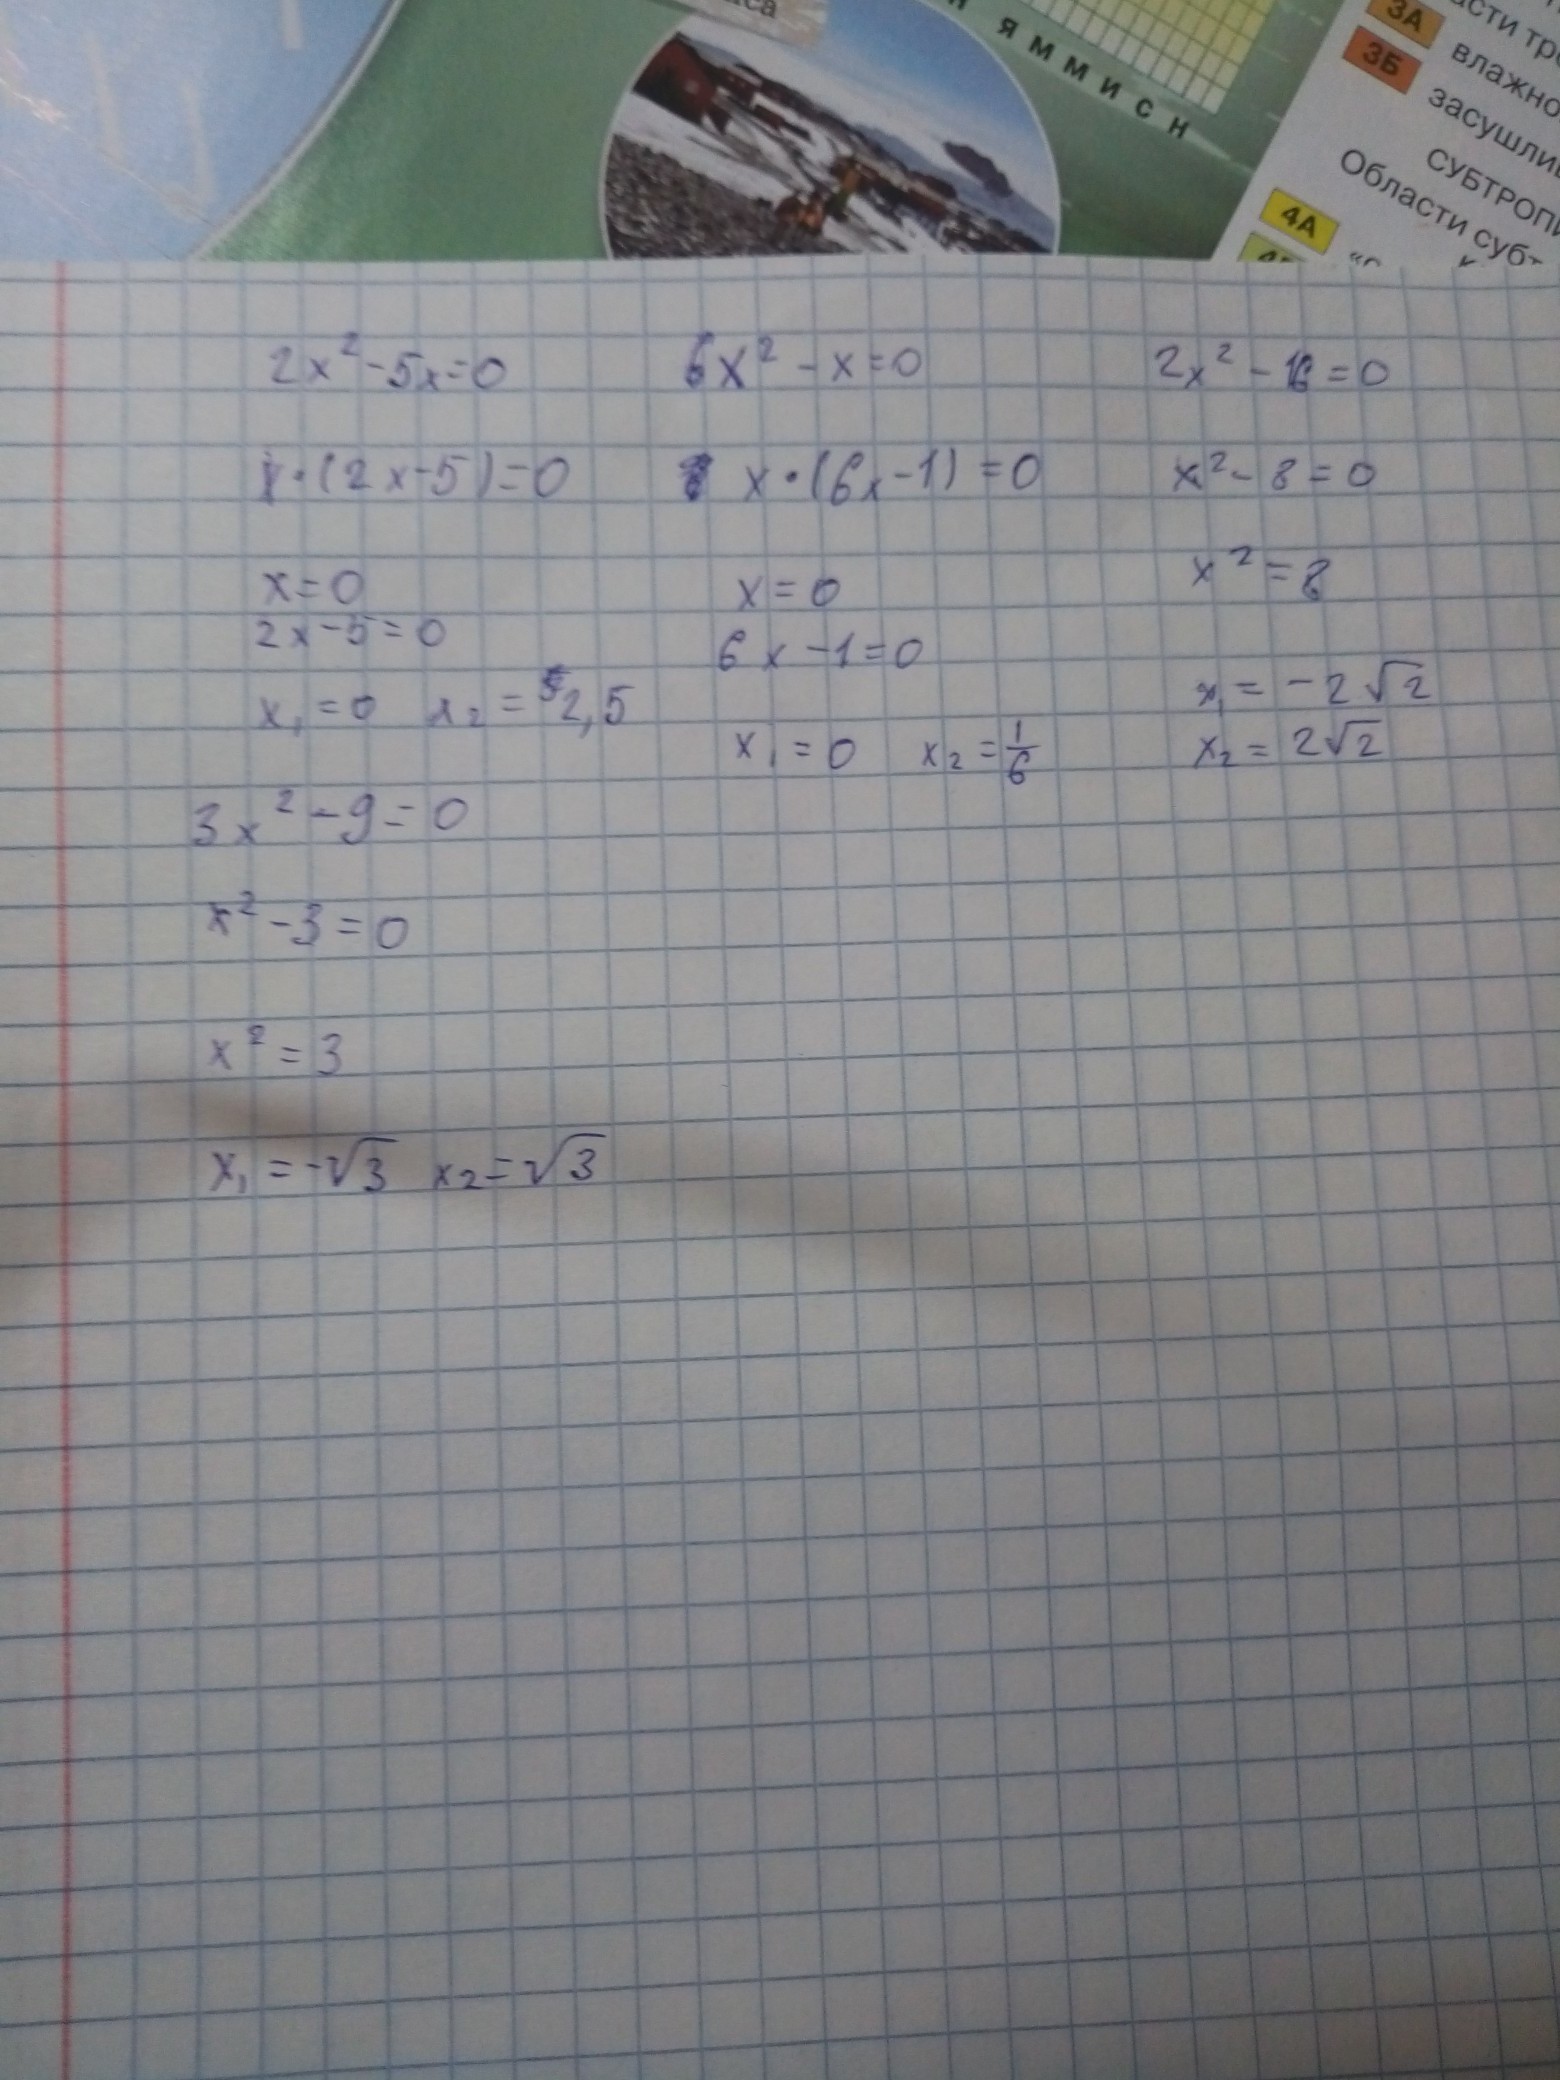 яммисн
3А
влажно
3Б
засушли
СУБТРОПИ
Области субт
4А
2x² - 5x = 0
x · (2x - 5) = 0
x = 0
2x - 5 = 0
x₁ = 0 x₂ = 2,5
6x² - x = 0
x · (6x - 1) = 0
x = 0
6x - 1 = 0
x₁ = 0 x₂ = 1/6
2x² - 16 = 0
x² - 8 = 0
x² = 8
x₁ = -2√2
x₂ = 2√2
3x² - 9 = 0
x² - 3 = 0
x² = 3
x₁ = -√3 x₂ = √3